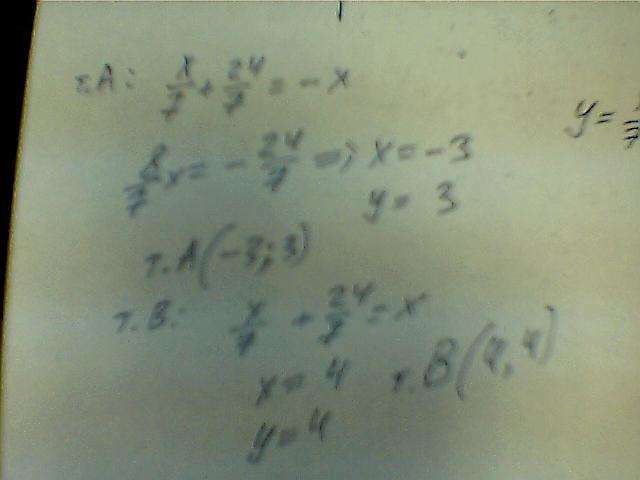 т.А: x/7 + 24/7 = -x
8/7 x = - 24/7 => x = -3
y = 3
т.А(-3; 3)
т.В: x/7 + 24/7 = x
x = 4 т.В(4, 4)
y = 4
y =